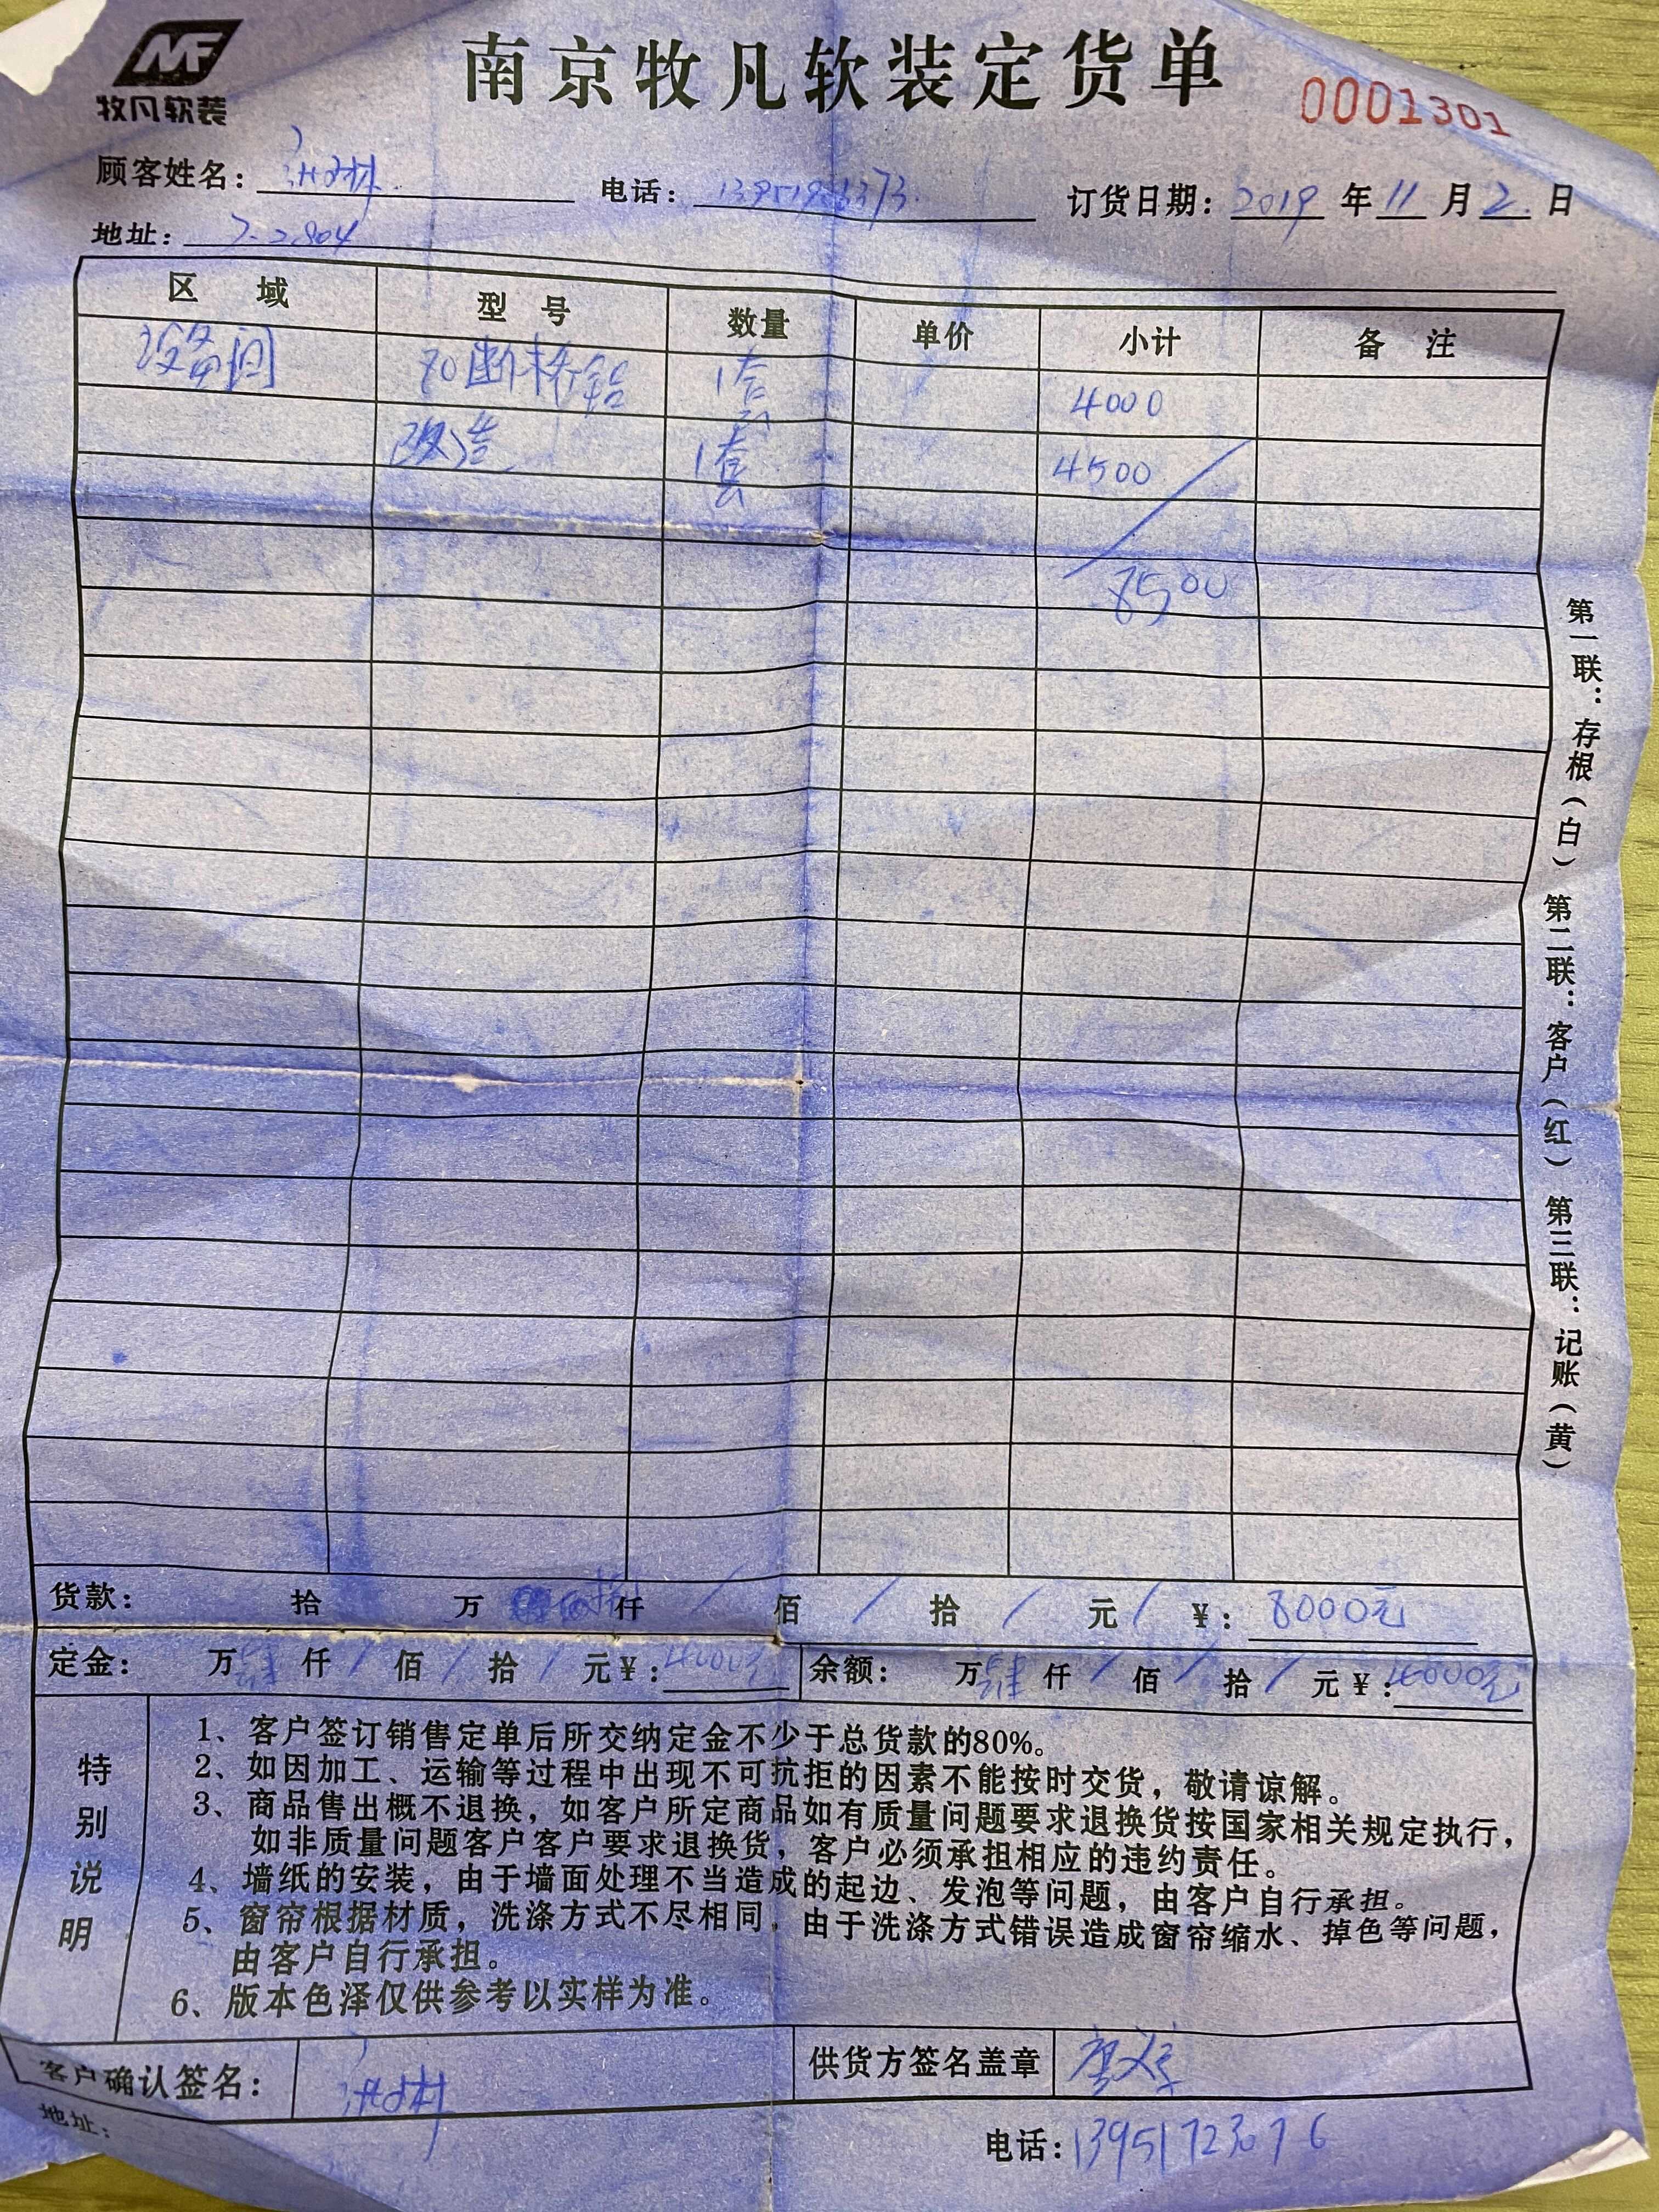 MF
牧凡软装
南京牧凡软装定货单
0001301
顾客姓名： 电话： 订货日期：2019年11月2日
地址：7-2.804
区域 型号 数量 单价 小计 备注
设备间 70断桥铝 1套 4000
改造 1套 4500
8500
第一联：存根（白） 第二联：客户（红） 第三联：记账（黄）
货款： 拾 万 捌仟 / 佰 / 拾 / 元 / ¥：8000元
定金： 万 肆仟 / 佰 / 拾 / 元¥：4000元 余额： 万 肆仟 / 佰 / 拾 / 元¥：4000元
特别说明
1、客户签订销售定单后所交纳定金不少于总货款的80%。
2、如因加工、运输等过程中出现不可抗拒的因素不能按时交货，敬请谅解。
3、商品售出概不退换，如客户所定商品如有质量问题要求退换货按国家相关规定执行，
如非质量问题客户客户要求退换货，客户必须承担相应的违约责任。
4、墙纸的安装，由于墙面处理不当造成的起边、发泡等问题，由客户自行承担。
5、窗帘根据材质，洗涤方式不尽相同，由于洗涤方式错误造成窗帘缩水、掉色等问题，
由客户自行承担。
6、版本色泽仅供参考以实样为准。
客户确认签名： 供货方签名盖章
地址： 电话：13951723076